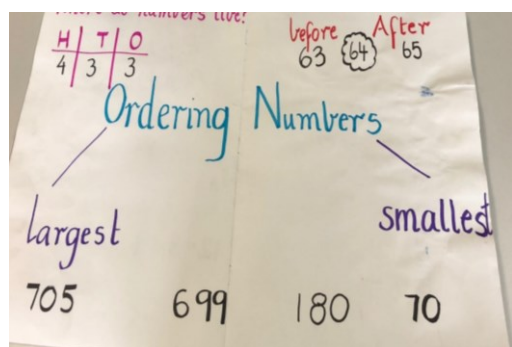 where do numbers live?
H T O
4 3 3
before After
63 64 65
Ordering Numbers
largest
smallest
705 699 180 70